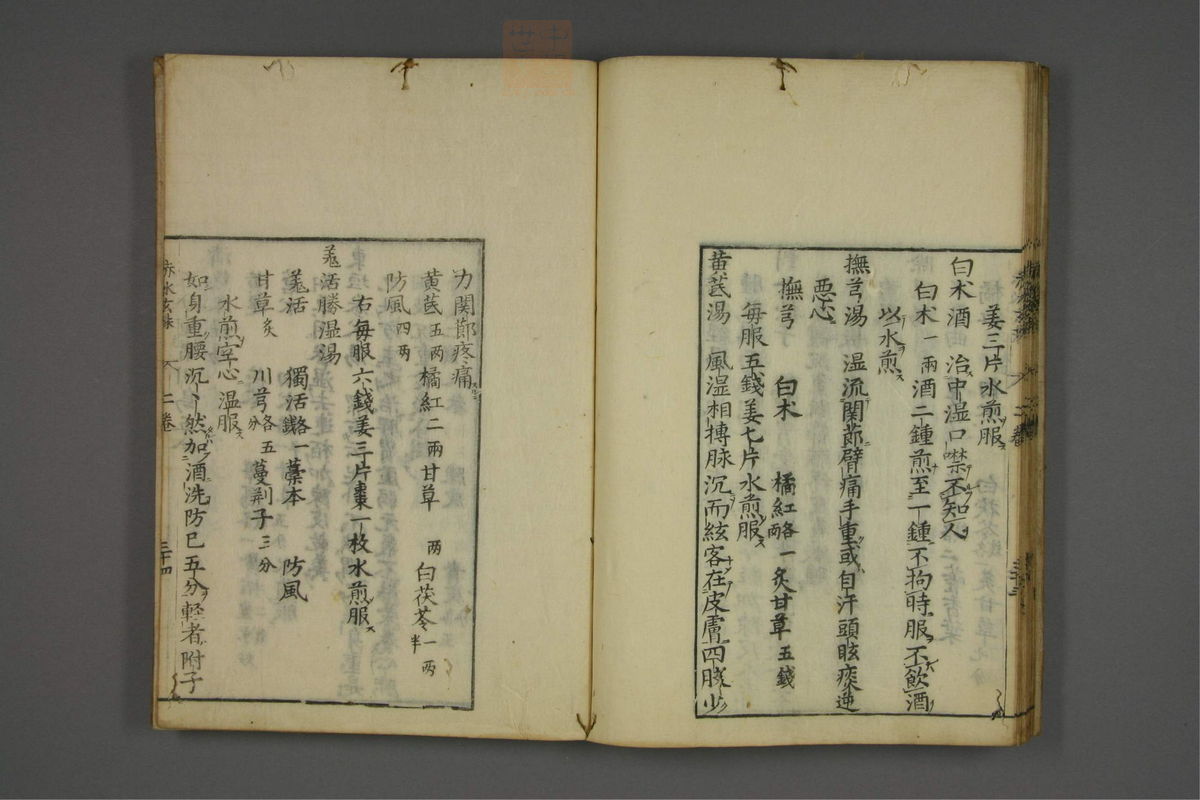 姜三片水煎服
白朮酒 治中湿口噤不知人
白朮一兩酒二鍾煎至一鍾不拘時服不飲酒
以水煎
撫芎湯 温流関節臂痛手重或自汗頭眩痰逆
悪心
撫芎 白朮 橘紅各一兩 炙甘草五錢
每服五錢姜七片水煎服
黄茋湯 風湿相搏脉沉而絃客在皮膚四肢少
力関節疼痛
黄茋五兩橘紅二兩甘草 兩白茯苓一两半
防風四两
右每服六錢姜三片棗一枚水煎服
羌活勝温湯
羌活 獨活各一錢 藁本 防風
甘草炙 川芎各五分 蔓荆子三分
水煎空心温服
如身重腰沉沉然加酒洗防已五分軽者附子
赤水玄珠 二卷 三十四